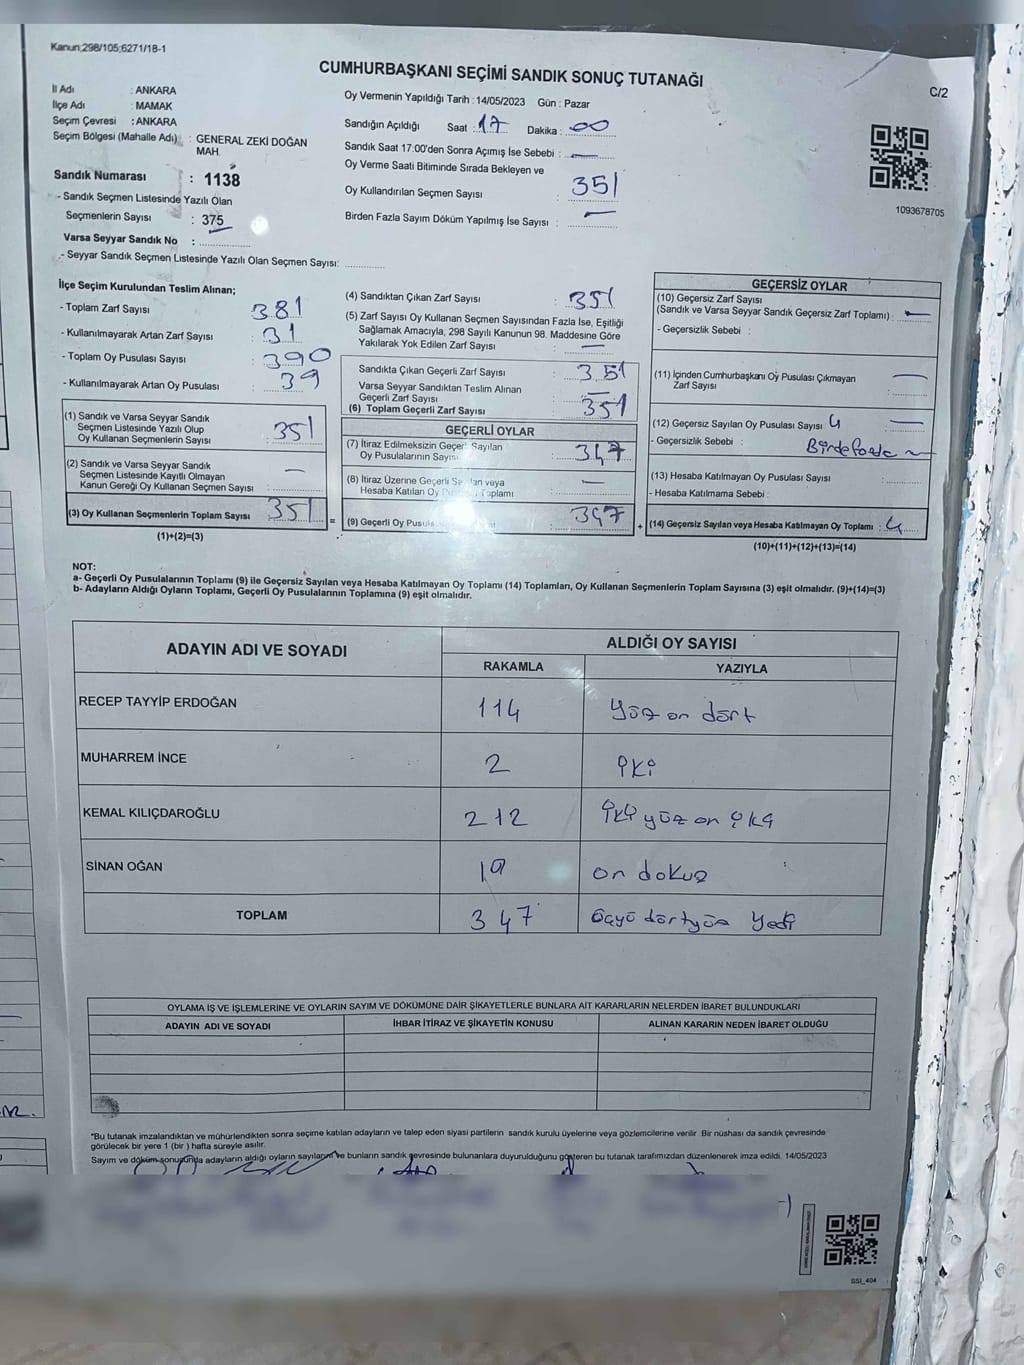 Kanun;298/105;6271/18-1
CUMHURBAŞKANI SEÇİMİ SANDIK SONUÇ TUTANAĞI
C/2
İl Adı : ANKARA
İlçe Adı : MAMAK
Seçim Çevresi : ANKARA
Seçim Bölgesi (Mahalle Adı) : GENERAL ZEKİ DOĞAN
MAH.
Sandık Numarası : 1138
- Sandık Seçmen Listesinde Yazılı Olan
Seçmenlerin Sayısı : 375
Varsa Seyyar Sandık No :
- Seyyar Sandık Seçmen Listesinde Yazılı Olan Seçmen Sayısı:
Oy Vermenin Yapıldığı Tarih : 14/05/2023 Gün : Pazar
Sandığın Açıldığı Saat : 17 Dakika : 00
Sandık Saat 17:00'den Sonra Açımış İse Sebebi : —
Oy Verme Saati Bitiminde Sırada Bekleyen ve
Oy Kullandırılan Seçmen Sayısı : 351
Birden Fazla Sayım Döküm Yapılmış İse Sayısı : —
1093678705
İlçe Seçim Kurulundan Teslim Alınan;
- Toplam Zarf Sayısı : 381
- Kullanılmayarak Artan Zarf Sayısı : 31
- Toplam Oy Pusulası Sayısı : 390
- Kullanılmayarak Artan Oy Pusulası : 39
(1) Sandık ve Varsa Seyyar Sandık
Seçmen Listesinde Yazılı Olup
Oy Kullanan Seçmenlerin Sayısı : 351
(2) Sandık ve Varsa Seyyar Sandık
Seçmen Listesinde Kayıtlı Olmayan
Kanun Gereği Oy Kullanan Seçmen Sayısı : —
(3) Oy Kullanan Seçmenlerin Toplam Sayısı : 351
(1)+(2)=(3)
(4) Sandıktan Çıkan Zarf Sayısı : 351
(5) Zarf Sayısı Oy Kullanan Seçmen Sayısından Fazla İse, Eşitliği
Sağlamak Amacıyla, 298 Sayılı Kanunun 98. Maddesine Göre
Yakılarak Yok Edilen Zarf Sayısı : —
Sandıkta Çıkan Geçerli Zarf Sayısı : 351
Varsa Seyyar Sandıktan Teslim Alınan
Geçerli Zarf Sayısı : —
(6) Toplam Geçerli Zarf Sayısı : 351
GEÇERLİ OYLAR
(7) İtiraz Edilmeksizin Geçerli Sayılan
Oy Pusulalarının Sayısı : 347
(8) İtiraz Üzerine Geçerli Sayılan veya
Hesaba Katılan Oy Toplamı : —
= (9) Geçerli Oy : 347
GEÇERSİZ OYLAR
(10) Geçersiz Zarf Sayısı
(Sandık ve Varsa Seyyar Sandık Geçersiz Zarf Toplamı) : —
- Geçersizlik Sebebi :
(11) İçinden Cumhurbaşkanı Oy Pusulası Çıkmayan
Zarf Sayısı : —
(12) Geçersiz Sayılan Oy Pusulası Sayısı 4 : —
- Geçersizlik Sebebi :
(13) Hesaba Katılmayan Oy Pusulası Sayısı :
- Hesaba Katılmama Sebebi :
+ (14) Geçersiz Sayılan veya Hesaba Katılmayan Oy Toplamı : 4
(10)+(11)+(12)+(13)=(14)
NOT:
a- Geçerli Oy Pusulalarının Toplamı (9) ile Geçersiz Sayılan veya Hesaba Katılmayan Oy Toplamı (14) Toplamları, Oy Kullanan Seçmenlerin Toplam Sayısına (3) eşit olmalıdır. (9)+(14)=(3)
b- Adayların Aldığı Oyların Toplamı, Geçerli Oy Pusulalarının Toplamına (9) eşit olmalıdır.
ADAYIN ADI VE SOYADI
ALDIĞI OY SAYISI
RAKAMLA YAZIYLA
RECEP TAYYİP ERDOĞAN 114 yüz on dört
MUHARREM İNCE 2 iki
KEMAL KILIÇDAROĞLU 212 iki yüz on iki
SİNAN OĞAN 19 on dokuz
TOPLAM 347 üçyü dörtyüz yedi
OYLAMA İŞ VE İŞLEMLERİNE VE OYLARIN SAYIM VE DÖKÜMÜNE DAİR ŞİKAYETLERLE BUNLARA AİT KARARLARIN NELERDEN İBARET BULUNDUKLARI
ADAYIN ADI VE SOYADI İHBAR İTİRAZ VE ŞİKAYETİN KONUSU ALINAN KARARIN NEDEN İBARET OLDUĞU
*Bu tutanak imzalandıktan ve mühürlendikten sonra seçime katılan adayların ve talep eden siyasi partilerin sandık kurulu üyelerine veya gözlemcilerine verilir. Bir nüshası da sandık çevresinde
görülecek bir yere 1 (bir) hafta süreyle asılır.
Sayım ve döküm sonucunda adayların aldığı oyların sayılarını ve bunların sandık çevresinde bulunanlara duyurulduğunu gösteren bu tutanak tarafımızdan düzenlenerek imza edildi. 14/05/2023
SSI_404